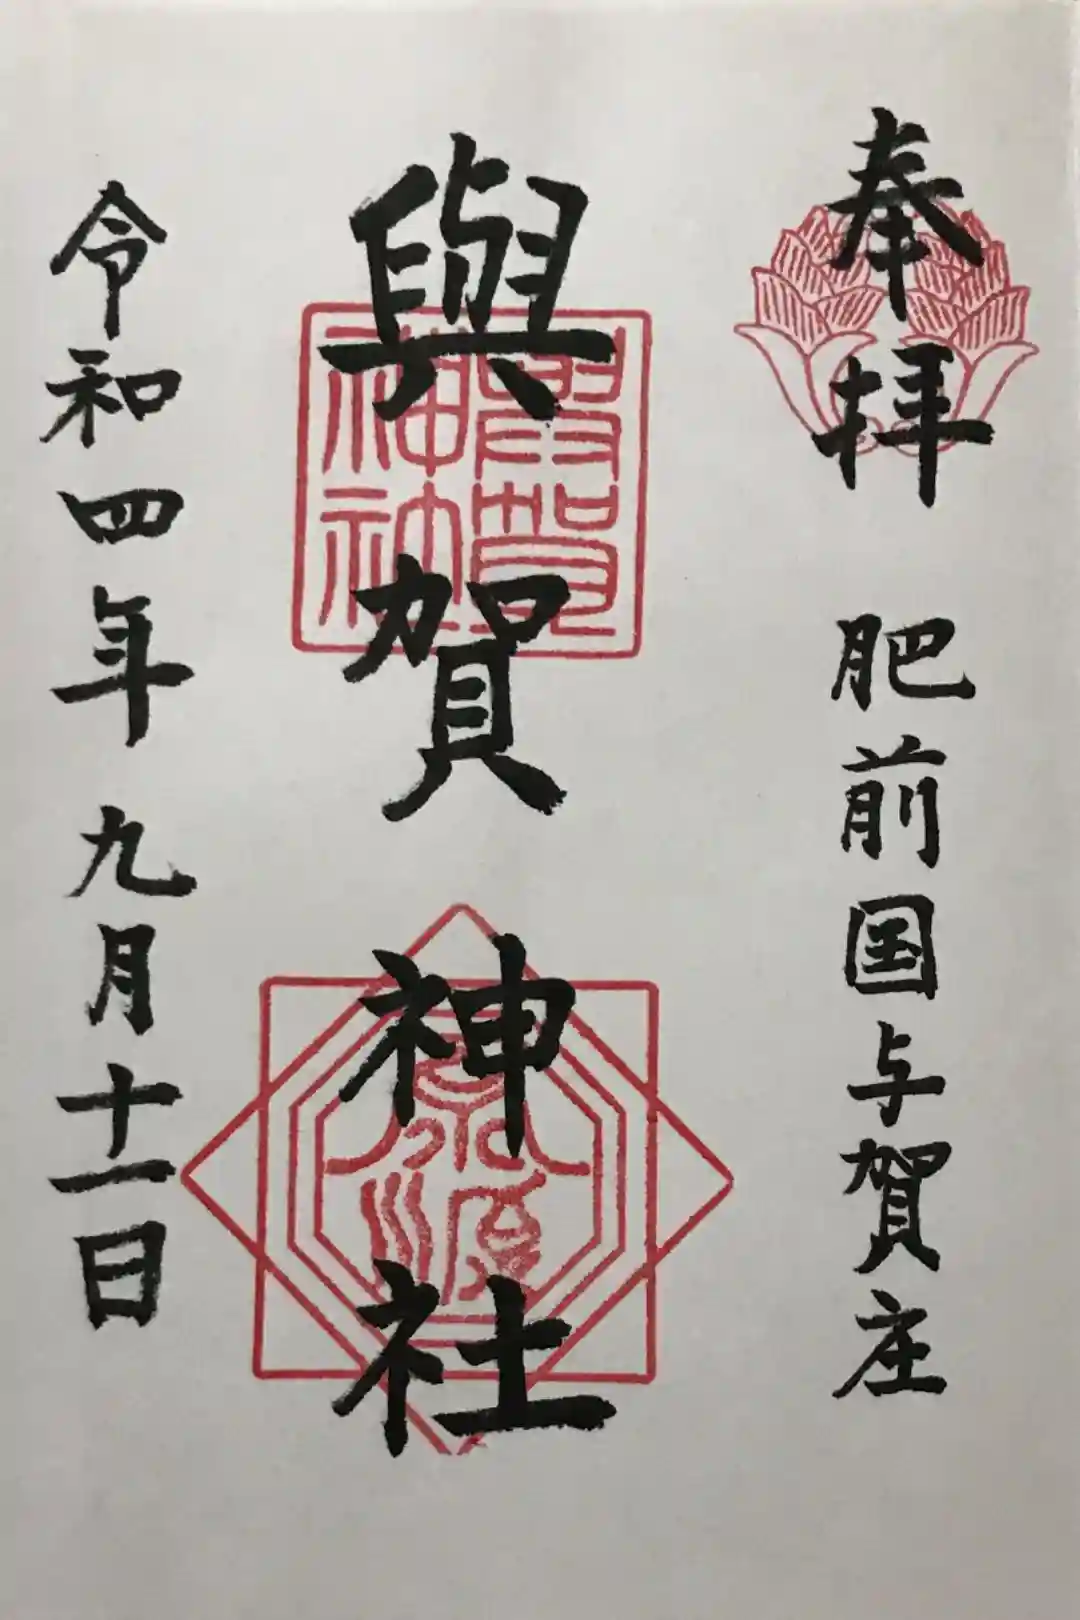 奉拝 肥前国与賀庄
與賀神社
與賀神社
令和四年九月十一日